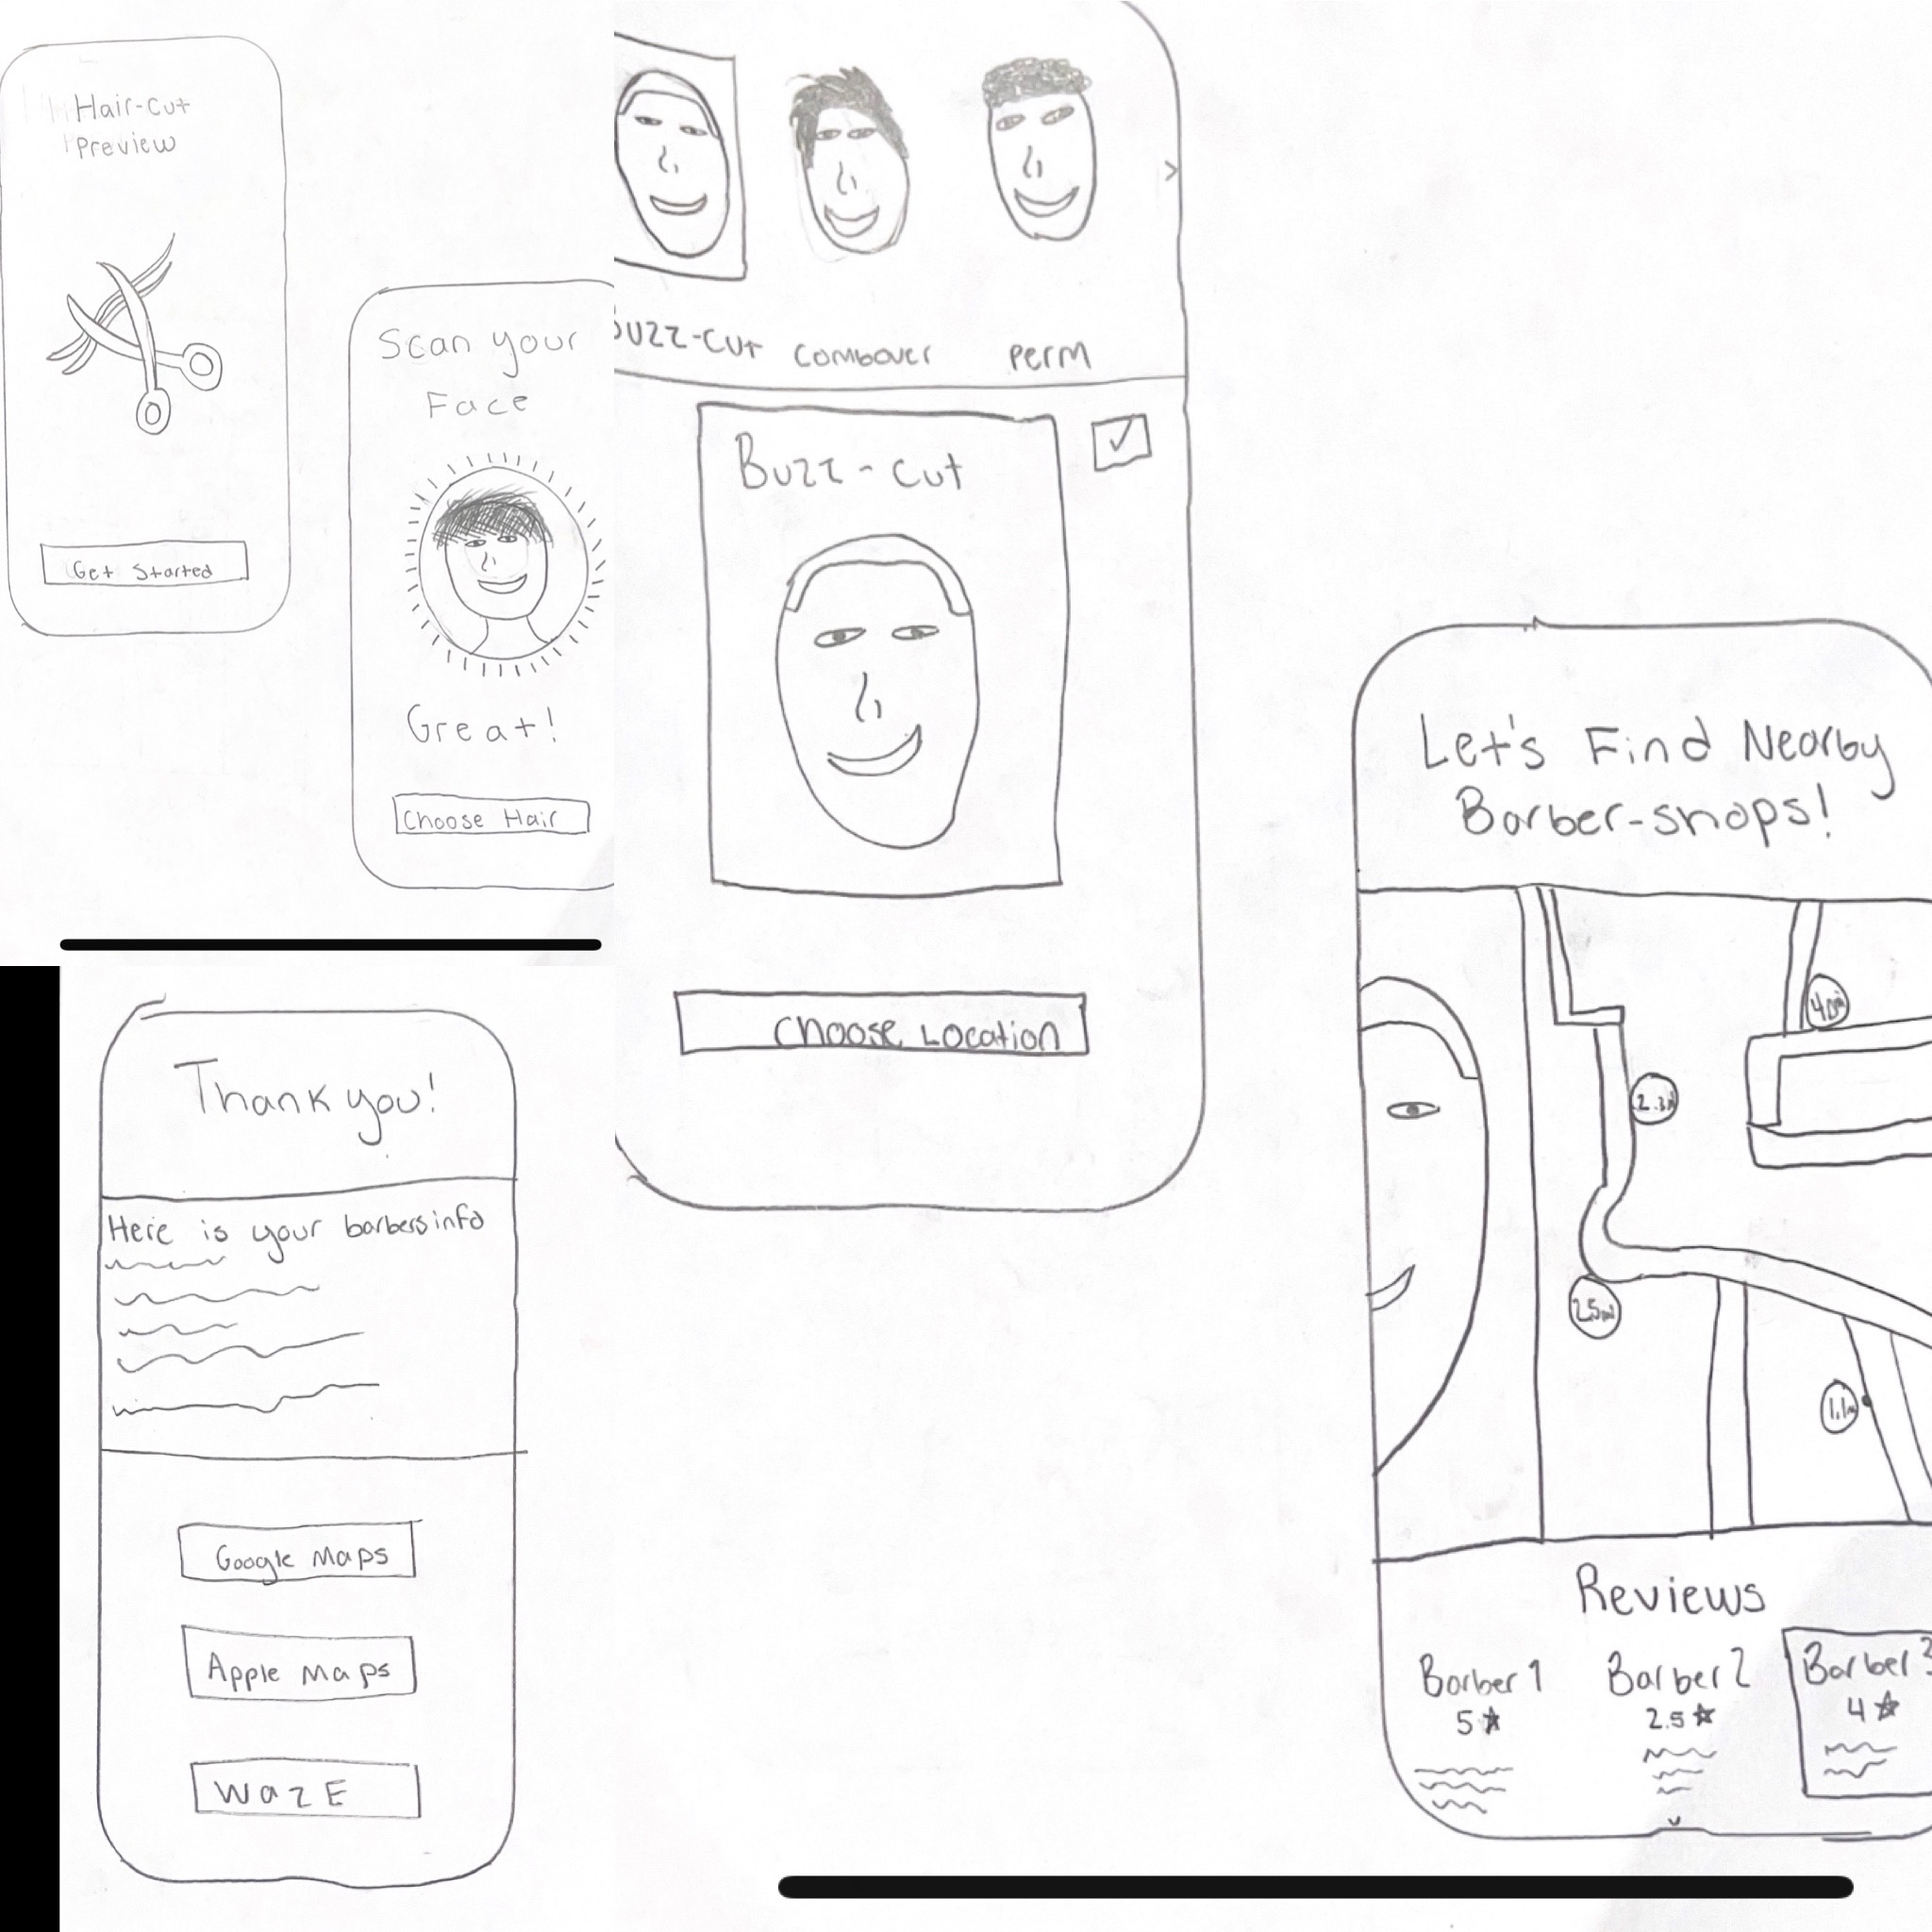 Hair-cut
Preview
Get Started
Scan your
Face
Great!
Choose Hair
Buzz-cut
Combover
Perm
Buzz-cut
Choose Location
Let's Find Nearby
Barber-shops!
2.5mi
Reviews
Barber 1
5★
Barber 2
2.5★
Barber 3
4★
Thank you!
Here is your barbers info
Google Maps
Apple Maps
WazE